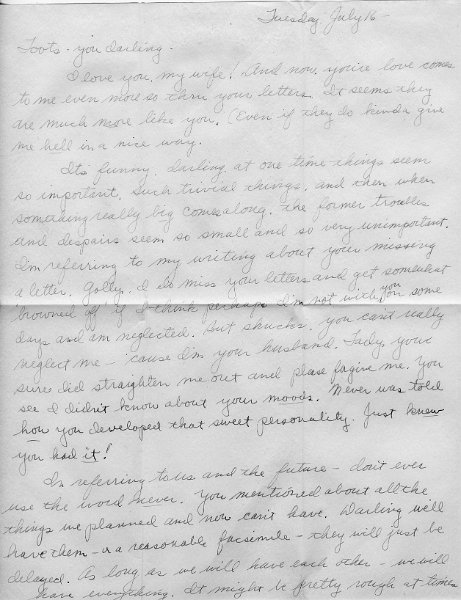 Tuesday - July 16 -
Toots - you darling -
I love you, my wife! And now, you're love comes
to me even more so than your letters. It seems they
are much more like you. (Even if they do kinda give
me hell in a nice way.
It's funny, darling, at one time things seem
so important. Such trivial things, and then when
something really big comes along, the former troubles
and despairs seem so small and so very unimportant.
I'm referring to my writing about your missing
a letter. Golly, I do miss your letters and get somewhat
browned off if I think perhaps I'm not with you some
days and am neglected. But shucks, you can't really
neglect me - 'cause I'm your husband. Lady, your
sure did straighten me out and please forgive me. You
see I didn't know about your moods. Never was told
how you developed that sweet personality. Just knew
you had it!
In referring to us and the future - don't ever
use the word never. You mentioned about all the
things we planned and now can't have. Darling we'll
have them - or a reasonable facsimile - they will just be
delayed. As long as we will have each other - we will
have everything. It might be pretty rough at times